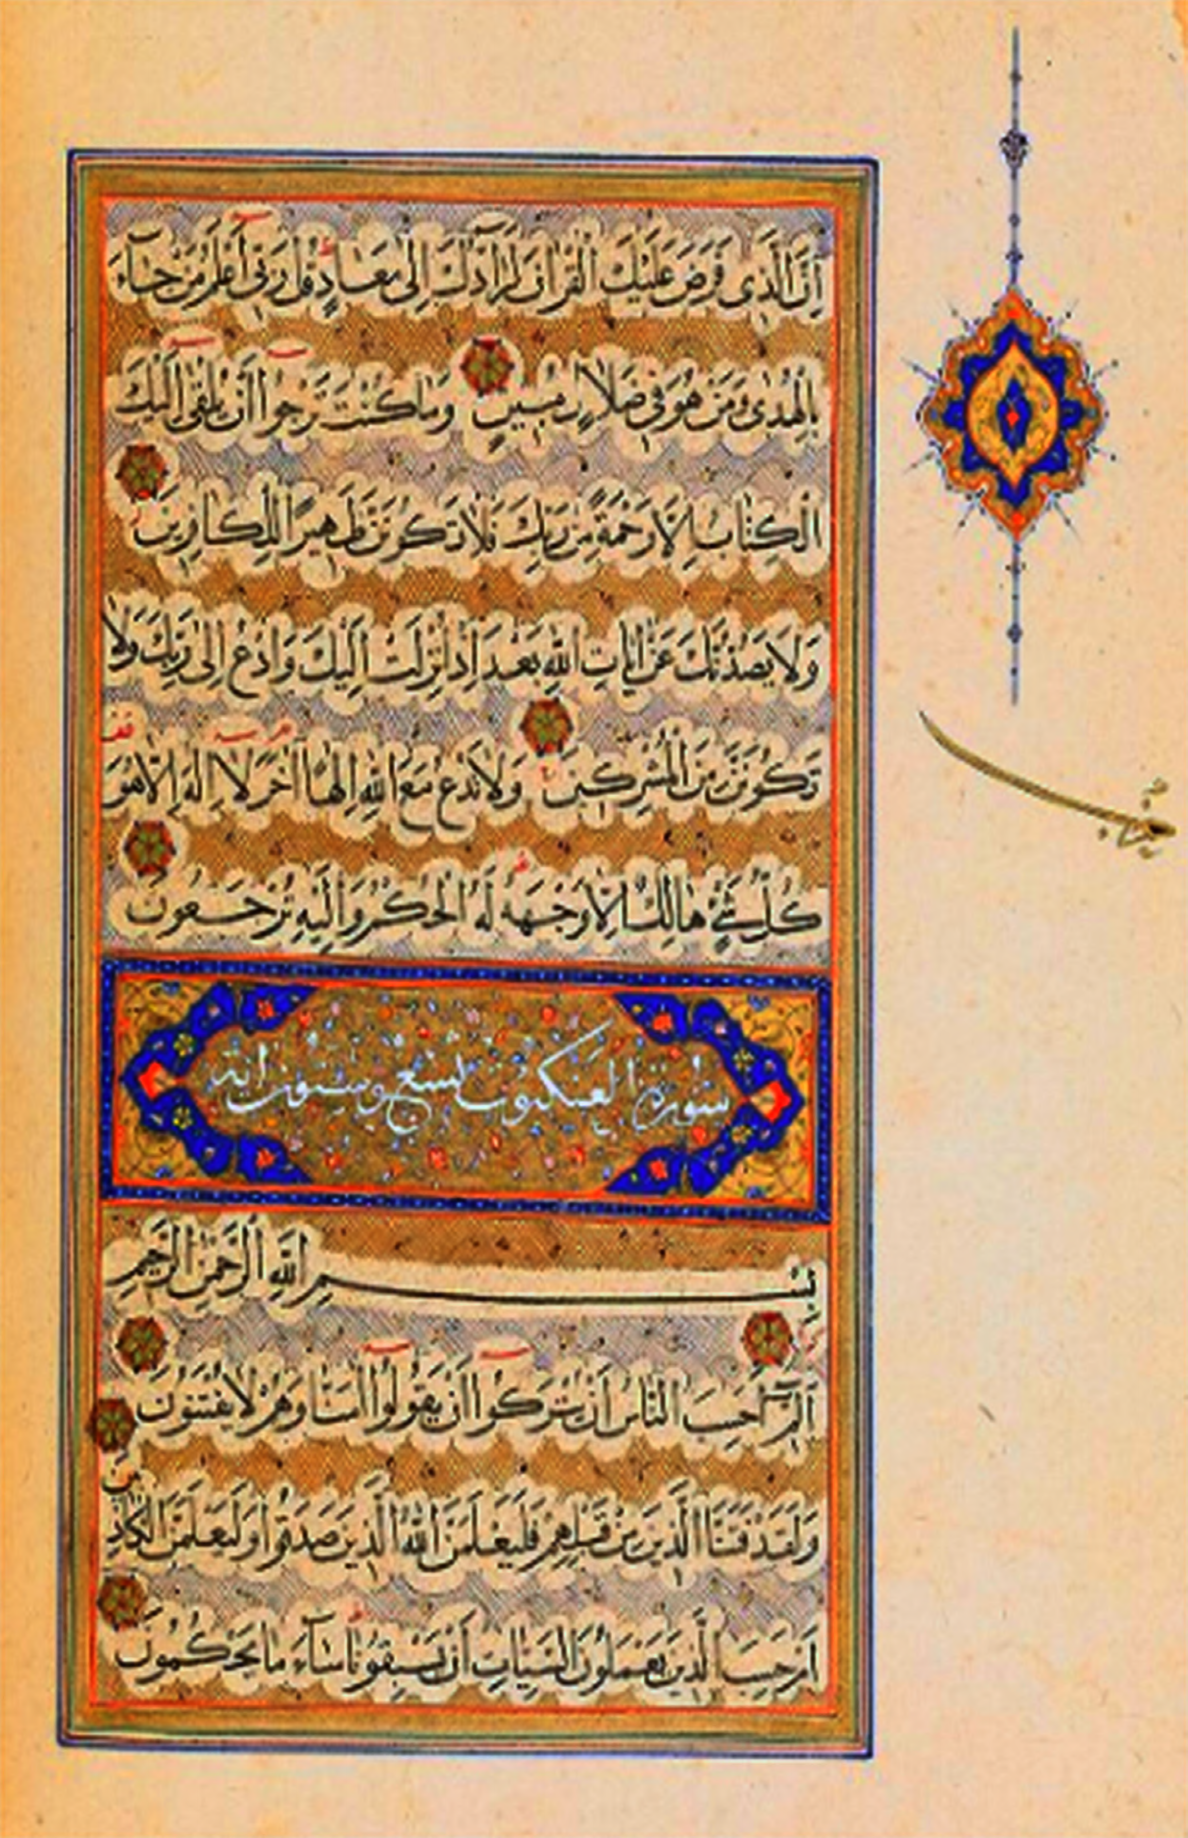 اِنَّ الَّذى فَرَضَ عَلَيْكَ الْقُرْاٰنَ لَرَآدُّكَ اِلٰى مَعَادٍ قُلْ رَبّى اَعْلَمُ مَنْ جَاءَ
بِالْهُدٰى وَمَنْ هُوَ فى ضَلَالٍ مُبينٍ وَمَا كُنْتَ تَرْجُوا اَنْ يُلْقٰى اِلَيْكَ
الْكِتَابُ اِلَّا رَحْمَةً مِنْ رَبِّكَ فَلَا تَكُونَنَّ ظَهيرًا لِلْكَافِرينَ
وَلَا يَصُدُّنَّكَ عَنْ اٰيَاتِ اللّٰهِ بَعْدَ اِذْ اُنْزِلَتْ اِلَيْكَ وَادْعُ اِلٰى رَبِّكَ وَلَا
تَكُونَنَّ مِنَ الْمُشْرِكينَ وَلَا تَدْعُ مَعَ اللّٰهِ اِلٰهًا اٰخَرَ لَا اِلٰهَ اِلَّا هُوَ
كُلُّ شَىْءٍ هَالِكٌ اِلَّا وَجْهَهُ لَهُ الْحُكْمُ وَاِلَيْهِ تُرْجَعُونَ
سورة العنكبوت تسع وستون اية
بِسْمِ اللّٰهِ الرَّحْمٰنِ الرَّحيمِ
الٓمٓ اَحَسِبَ النَّاسُ اَنْ يُتْرَكُوا اَنْ يَقُولُوا اٰمَنَّا وَهُمْ لَا يُفْتَنُونَ
وَلَقَدْ فَتَنَّا الَّذينَ مِنْ قَبْلِهِمْ فَلَيَعْلَمَنَّ اللّٰهُ الَّذينَ صَدَقُوا وَلَيَعْلَمَنَّ الْكَاذِبينَ
اَمْ حَسِبَ الَّذينَ يَعْمَلُونَ السَّيِّاٰتِ اَنْ يَسْبِقُونَا سَاءَ مَا يَحْكُمُونَ